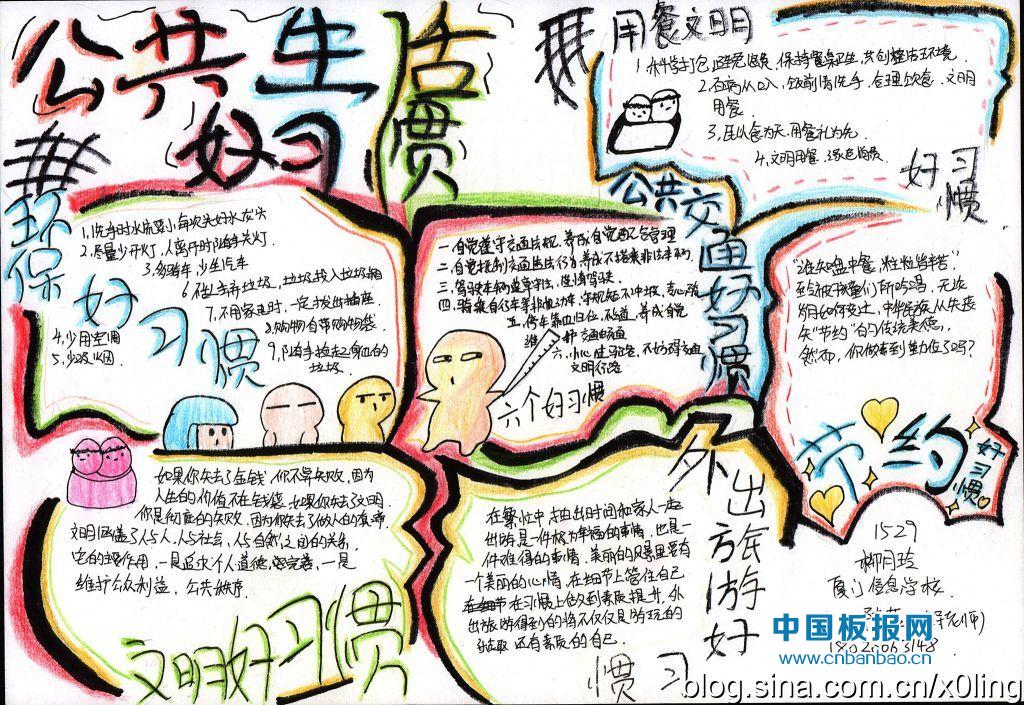 公共生活
好习惯
用餐文明
1.科学打包,避免浪费,保持餐桌卫生,共创整洁环境.
2.否病从口入,饭前请洗手,合理饮食,文明
用餐
3.民以食为天,用餐礼为先.
4.文明用餐
好习惯
环保
好习惯
1.洗手时水流要小,每次关好水龙头
2.尽量少开灯,人离开时随手关灯.
3.多骑车,少坐汽车
4.少用空调
5.少吸烟
6.不乱丢弃垃圾,垃圾投入垃圾箱
7.不用家电时,一定拔出插座
8.购物自带购物袋
9.随手捡起身边的
垃圾.
公共交通好习惯
一、自觉遵守交通法规,养成自觉配合管理
二、自觉抵制交通违法行为,养成不搭乘非法车辆
三、驾驶车辆遵章守法
四、骑乘自行车等非机动车,守规矩不冲坡
五、停车靠边归位,不乱道,养成自觉
维护交通畅通
六、小心过马路,不妨碍交通
文明行路
六个好习惯
"谁知盘中餐,粒粒皆辛苦"
至今被孩童们所吟唱.无论
岁月如何变迁,中华民族从未丧
失"节约"的传统美德,
然而,你做到勤俭了吗?
节约
好习惯
如果你失去了金钱,你不算失败,因为
人生的价值不在钱袋,如果你失去文明,
你是彻底的失败,因为你失去了做人的真谛
文明涵盖了人与人,人与社会,人与自然之间的关系.
它的主要作用,一是追求个人道德,完善,一是
维护公众利益,公共秩序.
文明好习惯
在繁忙中抽出时间和家人一起
出游是一件极为幸福的事情,也是一
件难得的事情,美丽的风景里要有
一个美丽的心情,在细节上管住自己
在习惯上做到素质提升,外
出旅游得到的将不仅仅是游玩的
还有素质的自己.
外出旅游好
习惯
1529
柳月玲
厦门信息学校
中国板报网
www.cnbanbao.cn
blog.sina.com.cn/x0ling